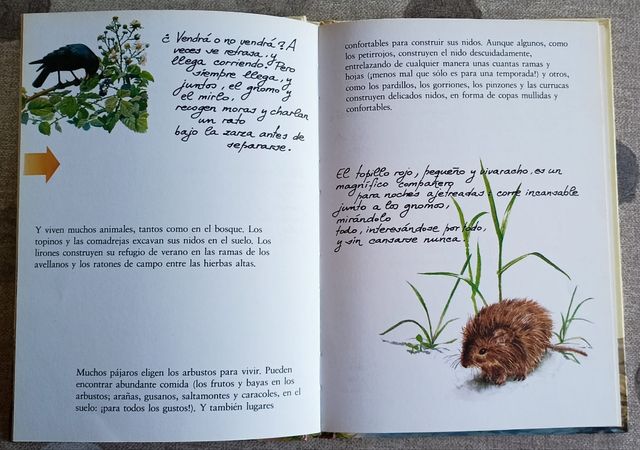 ¿Vendrá o no vendrá? A
veces se retrasa, y
llega corriendo. Pero
siempre llega, y
juntos, el gnomo y
el mirlo,
recogen moras y charlan
un rato
bajo la zarza antes de
separarse.
Y viven muchos animales, tantos como en el bosque. Los
topinos y las comadrejas excavan sus nidos en el suelo. Los
lirones construyen su refugio de verano en las ramas de los
avellanos y los ratones de campo entre las hierbas altas.
Muchos pájaros eligen los arbustos para vivir. Pueden
encontrar abundante comida (los frutos y bayas en los
arbustos; arañas, gusanos, saltamontes y caracoles, en el
suelo: ¡para todos los gustos!). Y también lugares
confortables para construir sus nidos. Aunque algunos, como
los petirrojos, construyen el nido descuidadamente,
entrelazando de cualquier manera unas cuantas ramas y
hojas (¡menos mal que sólo es para una temporada!) y otros,
como los pardillos, los gorriones, los pinzones y las currucas
construyen delicados nidos, en forma de copas mullidas y
confortables.
El topillo rojo, pequeño y vivaracho, es un
magnífico compañero
para noches ajetreadas: corre incansable
junto a los gnomos,
mirándolo
todo, interesándose por todo,
y sin cansarse nunca.